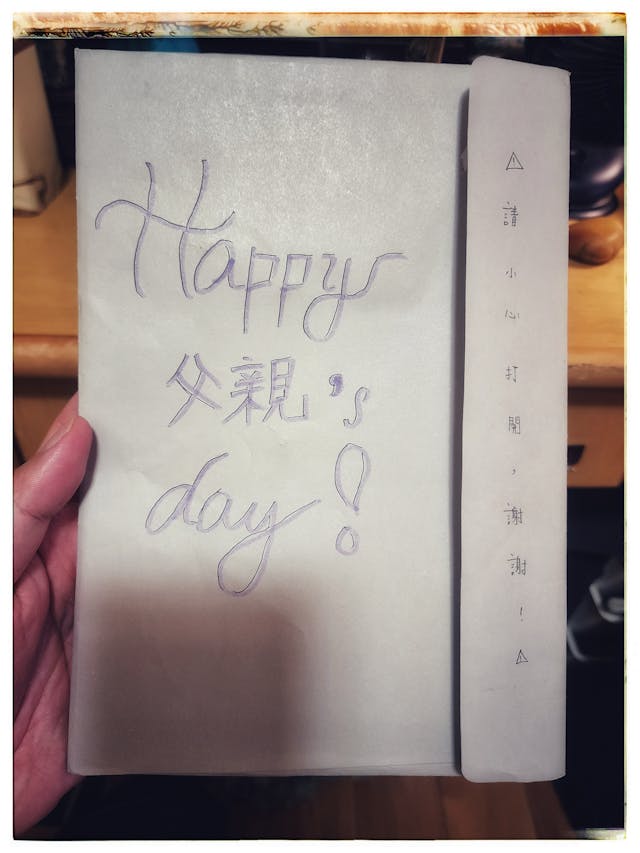 Happy
父親's
day!
⚠請小心打開,謝謝!⚠